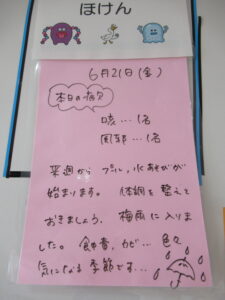 ほけん
6月21日(金)
本日の病欠
咳…1名
風邪…1名
来週から プール、水あそびが
始まります。 体調を整えて
おきましょう。 梅雨に入りま
した。 食中毒、カビ… 色々
気になる 季節です…